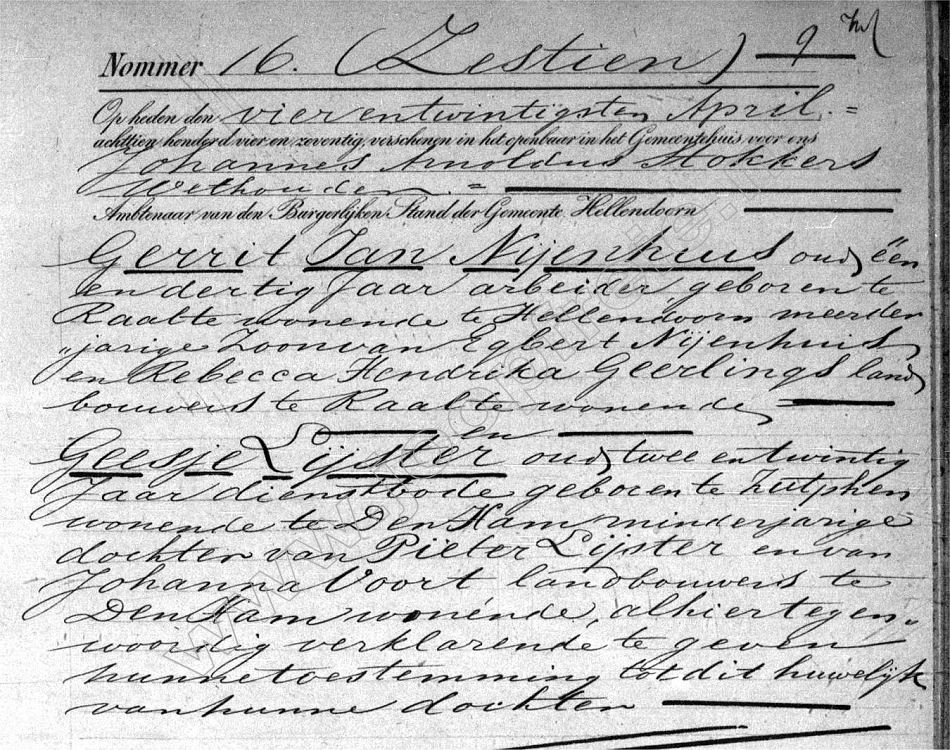 Nommer 16. (Zestien) 9
Op heden den vier en twintigsten April. =
achttien honderd vier en zeventig, verschenen in het openbaar in het Gemeentehuis voor ons
Johannes Arnoldus Stokkers
Wethouder =
Ambtenaar van den Burgerlijken Stand der Gemeente Hellendoorn
Gerrit Jan Nijenhuis oud, één
en dertig Jaar arbeider, geboren te
Raalte wonende te Hellendoorn meerder
"jarige Zoon van Egbert Nijenhuis,
en Rebecca Hendrika Geerlings land,
bouwers te Raalte wonende,
en
Geesje Lijster oud, twee en twintig
Jaar dienstbode geboren te Zutphen
wonende te Den Ham, minderjarige
dochter van Pieter Lijster en van
Johanna Voort landbouwers te
Den Ham wonende, alhier tegen„
woordig verklarende te geven
hunne toestemming tot dit huwelijk
van hunne dochter